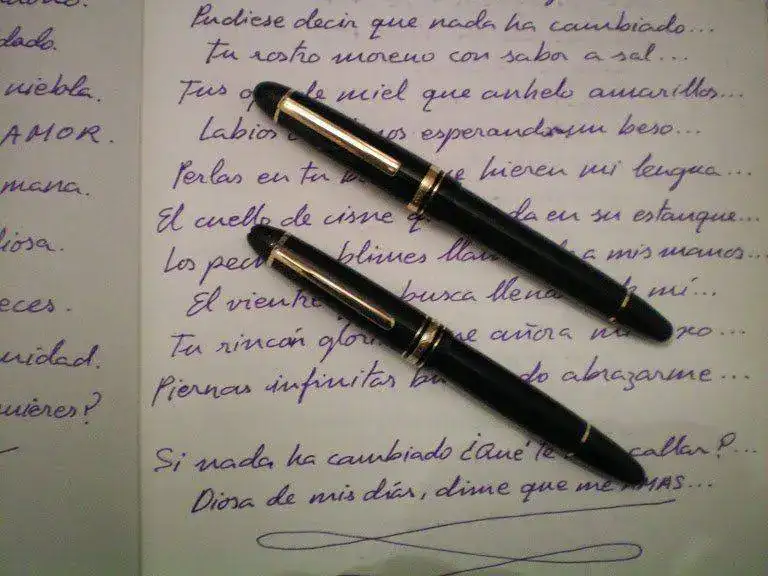 dado.
niebla.
AMOR.
mana.
iosa.
eces.
nidad.
uieres?
Pudiese decir que nada ha cambiado...
Tu rostro moreno con sabor a sal...
Tus de miel que anhelo amarillos...
Labios esperando un beso...
Perlas en tu hieren mi lengua...
El cuello de cisne en su estanque...
Los a mis manos...
El vientre busca mí...
Tu rincón añora
Piernas infinitas abrazarme...
Si nada ha cambiado ¿Qué te callar?...
Diosa de mis días, dime que me AMAS...